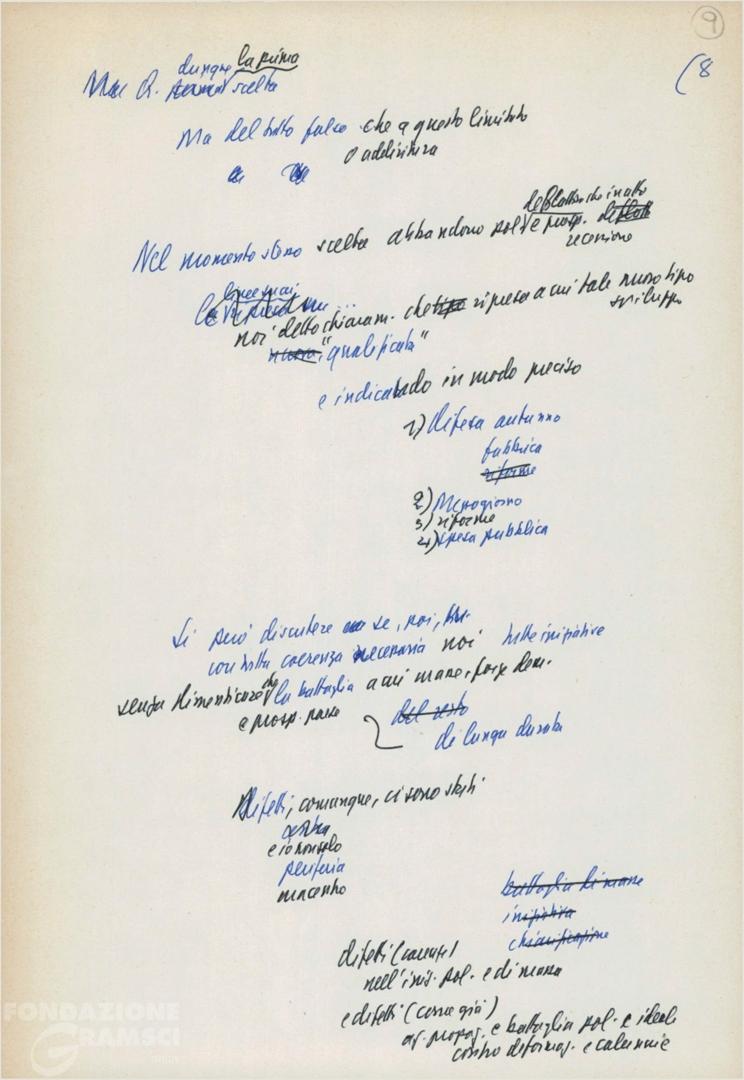 9
(8
dunque la prima
scelta
Ma del tutto falso che a questo limitato
o addirittura
Nel momento stesso scelta abbandono pol. e prosp.
recessione
linee mai
noi detto chiaram. che ripresa a cui tale nuovo tipo
sviluppo
"qualificata"
e indicando in modo preciso
1) difesa autunno
fabbrica
riforme
2) Mezzogiorno
3) riforme
4) spesa pubblica
Si può discutere se, poi,
con tutta coerenza necessaria noi tutte iniziative
senza dimenticare che la battaglia a cui masse, forze dem.
e prosp. nasce
del resto
di lunga durata
Difetti, comunque, ci sono stati
centro
e io non solo
periferia
ma centro
battaglia di masse
iniziativa
chiarificazione
difetti (carenze)
nell'iniz. pol. e di massa
e difetti (come già)
az. propag. e battaglia pol. e ideale
contro deformaz. e calunnie
FONDAZIONE
GRAMSCI